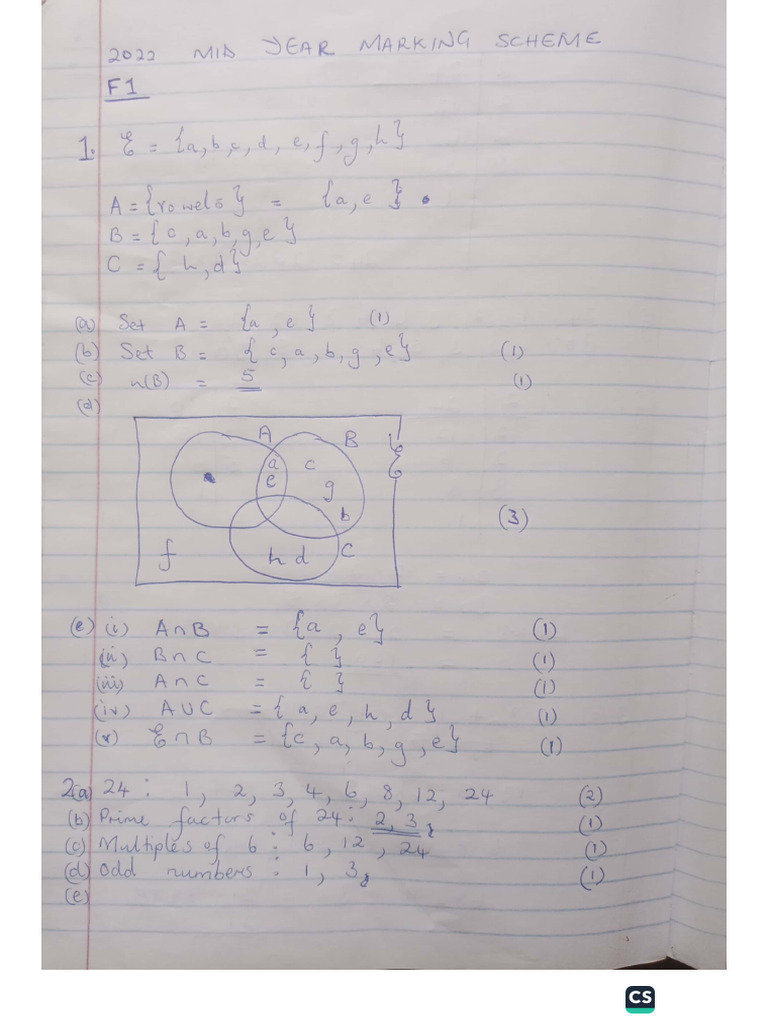 2022 MID YEAR MARKING SCHEME
F1
1. ℰ = {a, b, c, d, e, f, g, h}
A = {vowels} = {a, e}.
B = {c, a, b, g, e}
C = {h, d}
(a) Set A = {a, e} (1)
(b) Set B = {c, a, b, g, e} (1)
(c) n(B) = 5 (1)
(d)
A B
ℰ
a c
e g
b (3)
f h d C
(e) (i) A∩B = {a, e} (1)
(ii) B∩C = { } (1)
(iii) A∩C = { } (1)
(iv) A∪C = {a, e, h, d} (1)
(v) ℰ∩B = {c, a, b, g, e} (1)
2(a) 24 : 1, 2, 3, 4, 6, 8, 12, 24 (2)
(b) Prime factors of 24 : 2, 3 (1)
(c) Multiples of 6 : 6, 12, 24 (1)
(d) Odd numbers : 1, 3 (1)
(e)
CS